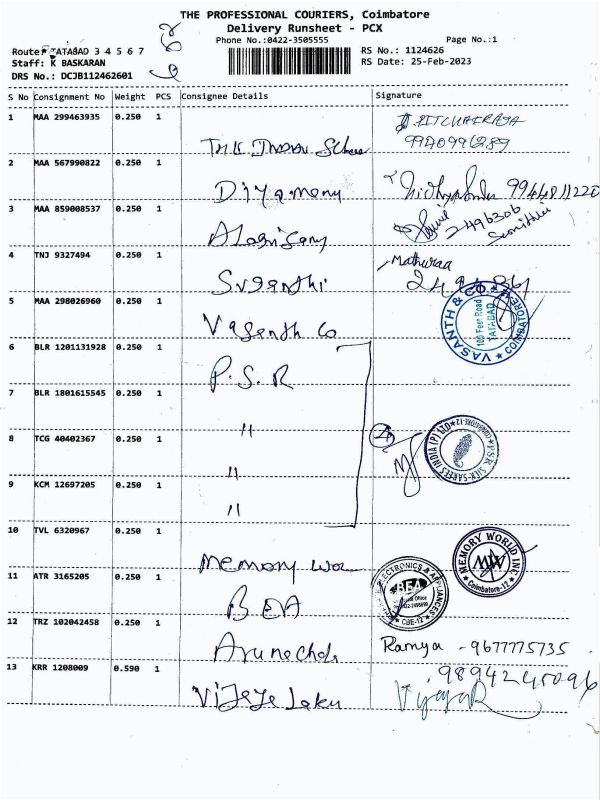 THE PROFESSIONAL COURIERS, Coimbatore
Delivery Runsheet - PCX
Phone No.:0422-3505555
Page No.:1
Route: TATABAD 3 4 5 6 7
RS No.: 1124626
Staff: K BASKARAN
RS Date: 25-Feb-2023
DRS No.: DCJB112462601
S No Consignment No Weight PCS Consignee Details Signature
1 MAA 299463935 0.250 1
9940996289
2 MAA 567990822 0.250 1
Diyamony 9944811220
3 MAA 859008537 0.250 1
2496306
4 TNJ 9327494 0.250 1 Mathuraa
Suganthi
5 MAA 298026960 0.250 1
Vasanth Co
VASANTH & CO. COIMBATORE
100 Feet Road
TATABAD
6 BLR 1201131928 0.250 1
P.S.R
7 BLR 1801615545 0.250 1
"
8 TCG 40402367 0.250 1
4
P.S.R SILK SAREES INDIA (P) LTD COIMBATORE-12
"
9 KCM 12697205 0.250 1
"
10 TVL 6320967 0.250 1
Memory
MEMORY WORLD INC.
MW
Coimbatore-12
11 ATR 3165205 0.250 1
BEA
ELECTRONICS & APPLIANCES
BEA
CBE-12
12 TRZ 102042458 0.250 1
Ramya - 9677775735
13 KRR 1208009 0.590 1